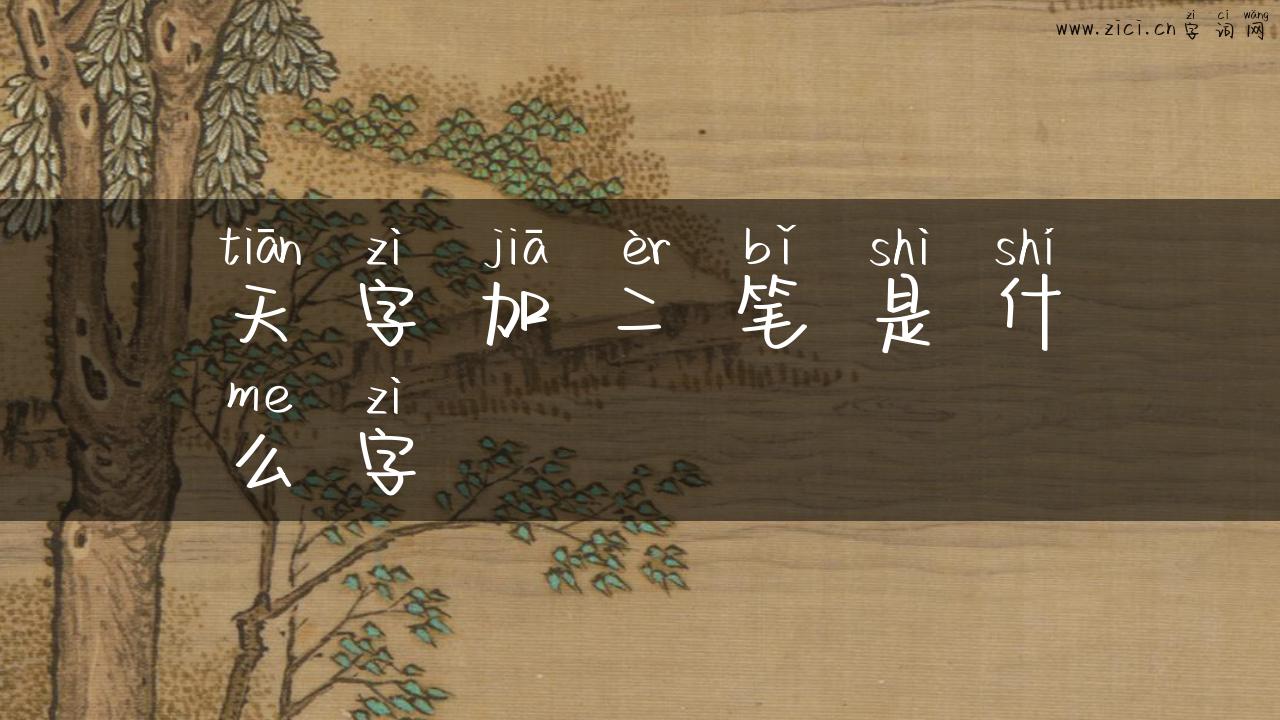 zì cí wǎng
www.zici.cn 字词网
tiān zì jiā èr bǐ shì shí
天字加二笔是什
me zì
么字